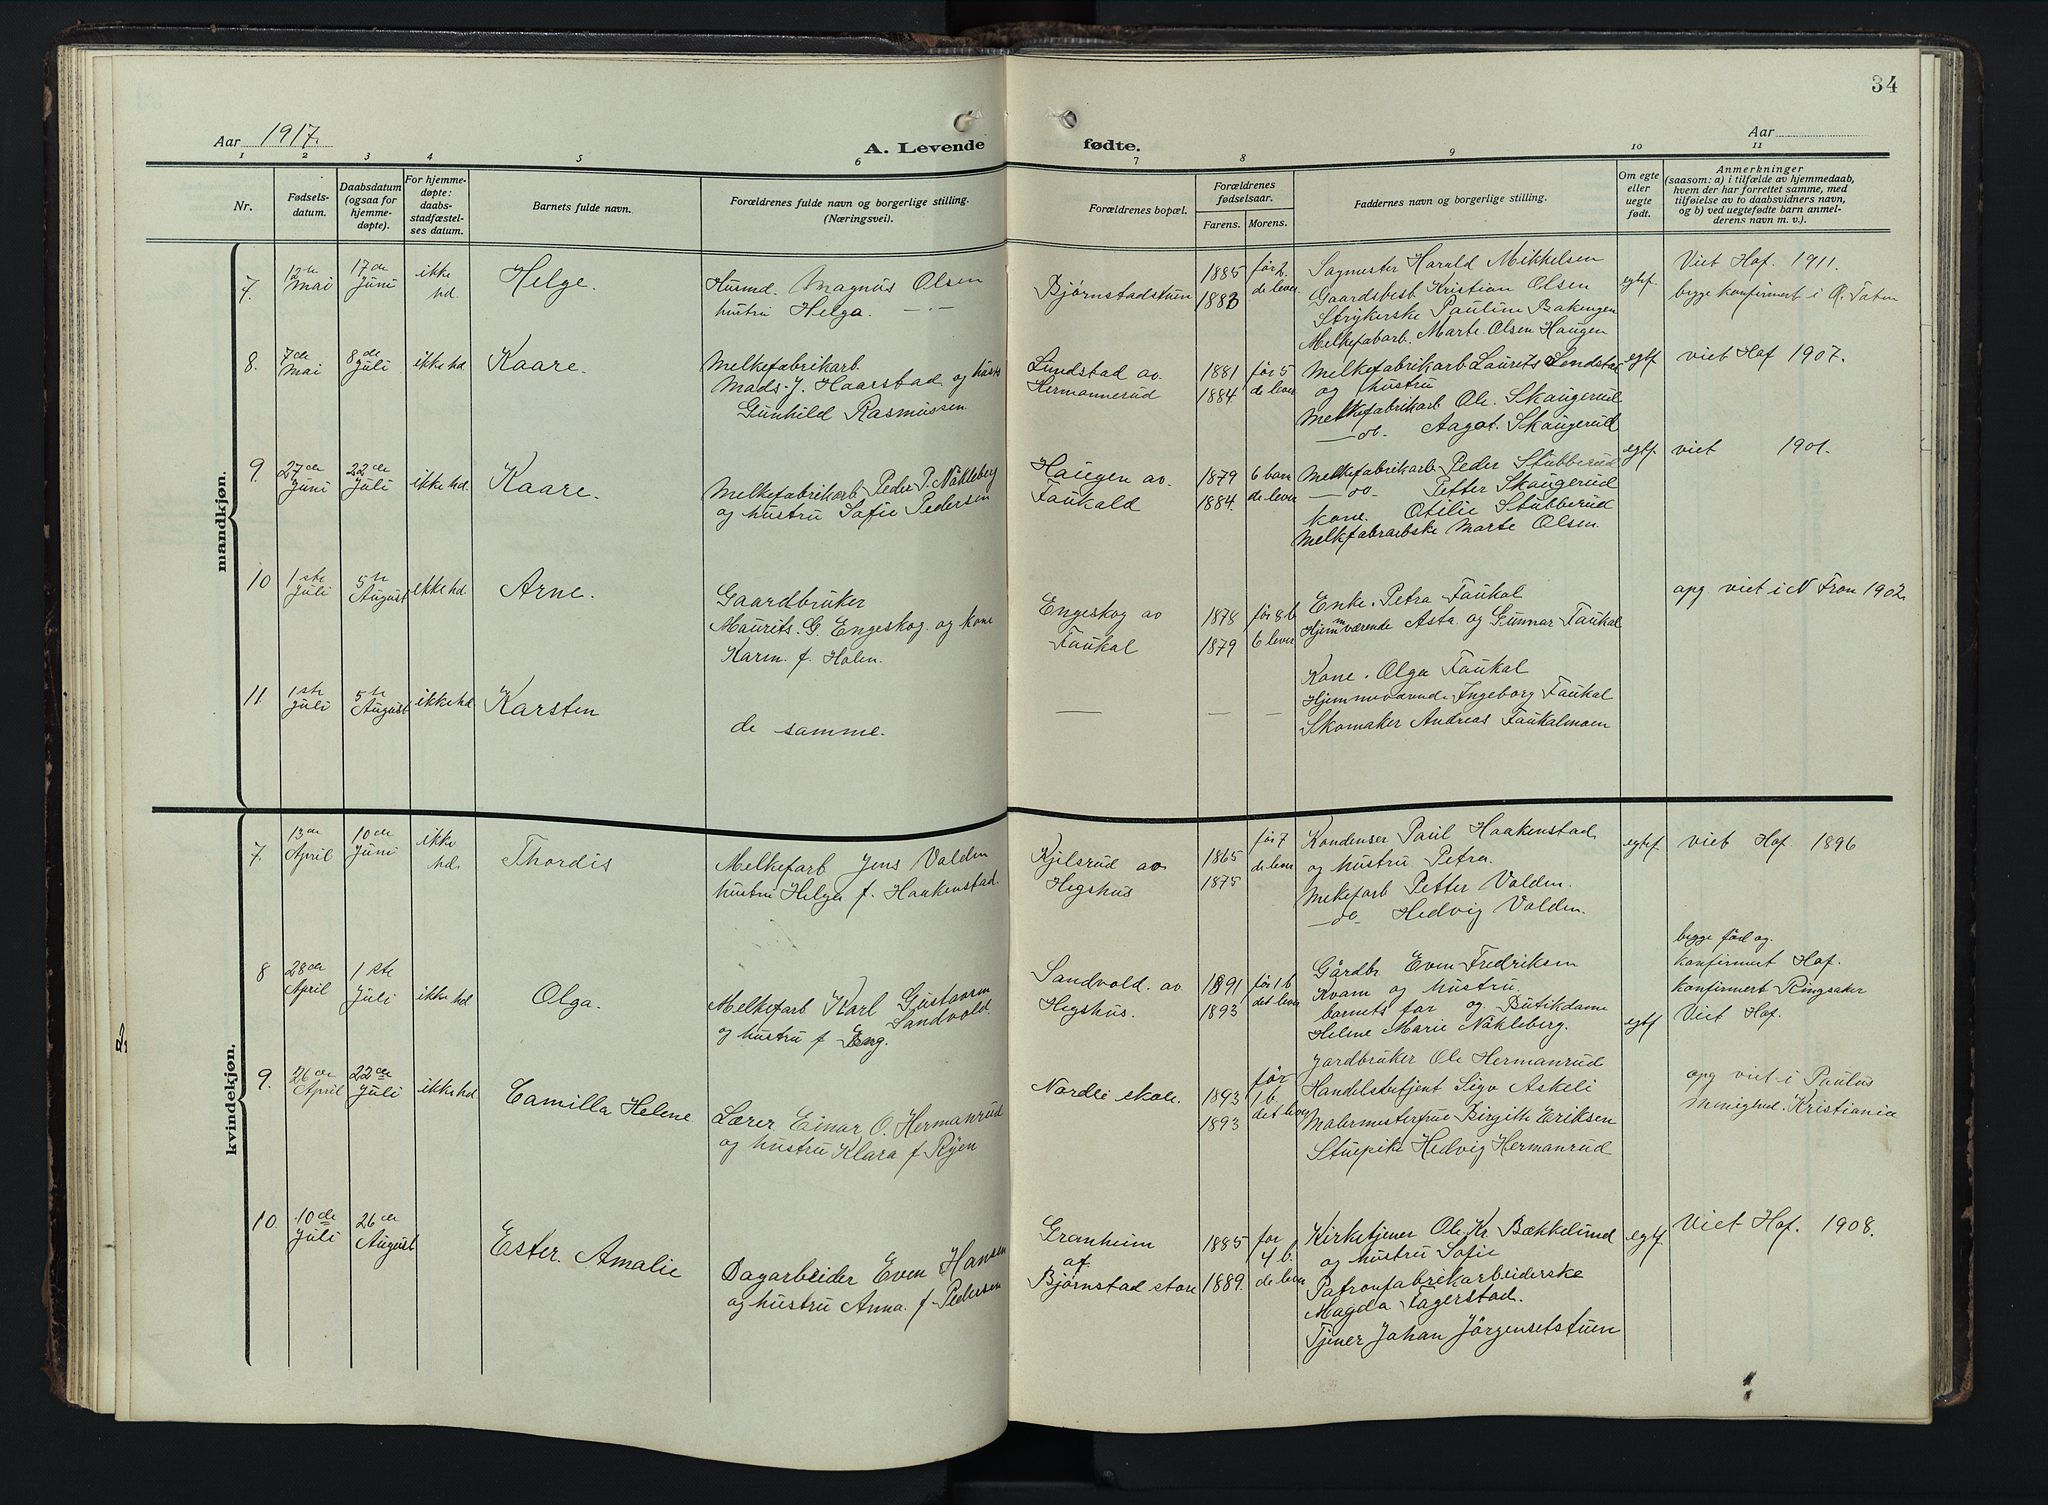 34
Aar 1917.
A. Levende fødte.
Aar
1 2 3 4 5 6 7 8 9 10 11
Nr.
Fødsels-
datum.
Daabsdatum
(ogsaa for
hjemme-
døpte).
For hjemme-
døpte:
daabs-
stadfæstel-
ses datum.
Barnets fulde navn.
Forældrenes fulde navn og borgerlige stilling.
(Næringsvei).
Forældrenes bopæl.
Forældrenes
fødselsaar.
Farens. Morens.
Faddernes navn og borgerlige stilling.
Om egte
eller
uegte
født.
Anmerkninger
(saasom: a) i tilfælde av hjemmedaab,
hvem der har forrettet samme, med
tilføielse av to daabsvidners navn,
og b) ved uegtefødte barn anmel-
derens navn m. v.).
mandkjøn.
7.
12te
mai
17de
Juni
ikke
hd.
Helge.
Husmd. Magnus Olsen
hustru Helga. —·—
Bjørnstadstuen
1885
1883
før 2.
de lever
Sagmester Harald Mikkelsen
Gaardsbest Kristian Olsen
Strykerske Pauline Bakengen
Melkefabarb. Marte Olsen Haugen
egtef
Viet Hof. 1911.
begge konfirmert i Ø. Toten
8.
7de
mai
8de
Juli
ikke hd
Kaare.
Melkefabrikarb.
Mads. J. Haarstad og hust
Gunhild Rasmussen
Lundstad av.
Hermannerud
1881
1884
før 5
de lever
Melkefabrikarb Laurits Lundstad
og hustru
Melkefabrikarb Ole. Skaugerud
—do— Aagot. Skaugerud
egtf
viet Hof 1907.
9.
27de
Juni
22de
Juli
ikke hd.
Kaare.
Melkefabrikarb Peder P. Nökleberg
og hustru Sofie Pedersen
Haugen av.
Faukald
1879
1884.
6 barn
de lever
Melkefabrikarb Peder Stubberud
—do— Petter Skaugerud
kone. Otilie Stubberud
Melkefabrarbske Marte Olsen.
egtf
viet 1901.
10
1ste
Juli
5te
August
ikke hd
Arne.
Gaardbruker
Maurits. G. Engeskog. og kone
Karen. f. Holen.
Engeskog av
Faukal
1878
1879
før 8 b
6 lever
Enke. Petra Faukal
Hjemmværende Asta og Gunnar Faukal
opg viet i N Fron 1902.
11.
1ste
Juli
5te
August
ikke hd
Karsten
de samme.
— — —
Kone. Olga Faukal
Hjemmeværende Ingeborg Faukal
Skomaker Andreas Faukalmoen
kvindekjøn.
7.
13de
April
10de
Juni
ikke
hd.
Thordis
Melkefarb Jens Volden
hustru Helga f. Haakenstad.
Kjelsrud av
Hegshus
1865
1875
før 7
de lever
Kondenser Paul Haakenstad
og hustru Petra.
Melkefarb Petter Volden.
—do— Hedvig Volden.
egtef.
viet Hof. 1896
8
28de
April
1ste
Juli
ikke hd
Olga.
Melkefarb Karl Gustavsen
Sandvold.
og hustru f Eng.
Sandvold. av
Hegshus.
1891
1893
før 1 b
det lever
Gårdbr Even Fredriksen
Kvam og hustru.
barnets far og Butikdame
Helene Marie Nökleberg.
egtf
begge fød og
konfirmert Hof.
konfirmert Ringsaker
Viet Hof.
9.
26de
April
22de
Juli
ikke hd
Camilla Helene
Lærer Einar O. Hermanrud
og hustru Klara f Ryen
Nordli skole.
1893
1893
før
1 b.
det lever
Jordbruker Ole Hermanrud
Handelsbetjent Sigv Askeli
Malermesterfrue Birgith Eriksen
Stuepike Hedvig Hermanrud
opg viet i Paulus
menighed. Kristiania
10.
10de
Juli
26de
August
Ester. Amalie
Dagarbeider Even Hansen
og hustru Anna. f. Pedersen
Granheim
af
Bjørnstad store
1885
1889.
for
4 b.
de lever
Kirketjener Ole. Kr. Bækkelund
og hustru Sofie
Patronfabrikarbeiderske
Magda Fagerstad.
Tjener Johan Jörgensetstuen
egtf.
Viet Hof. 1908.